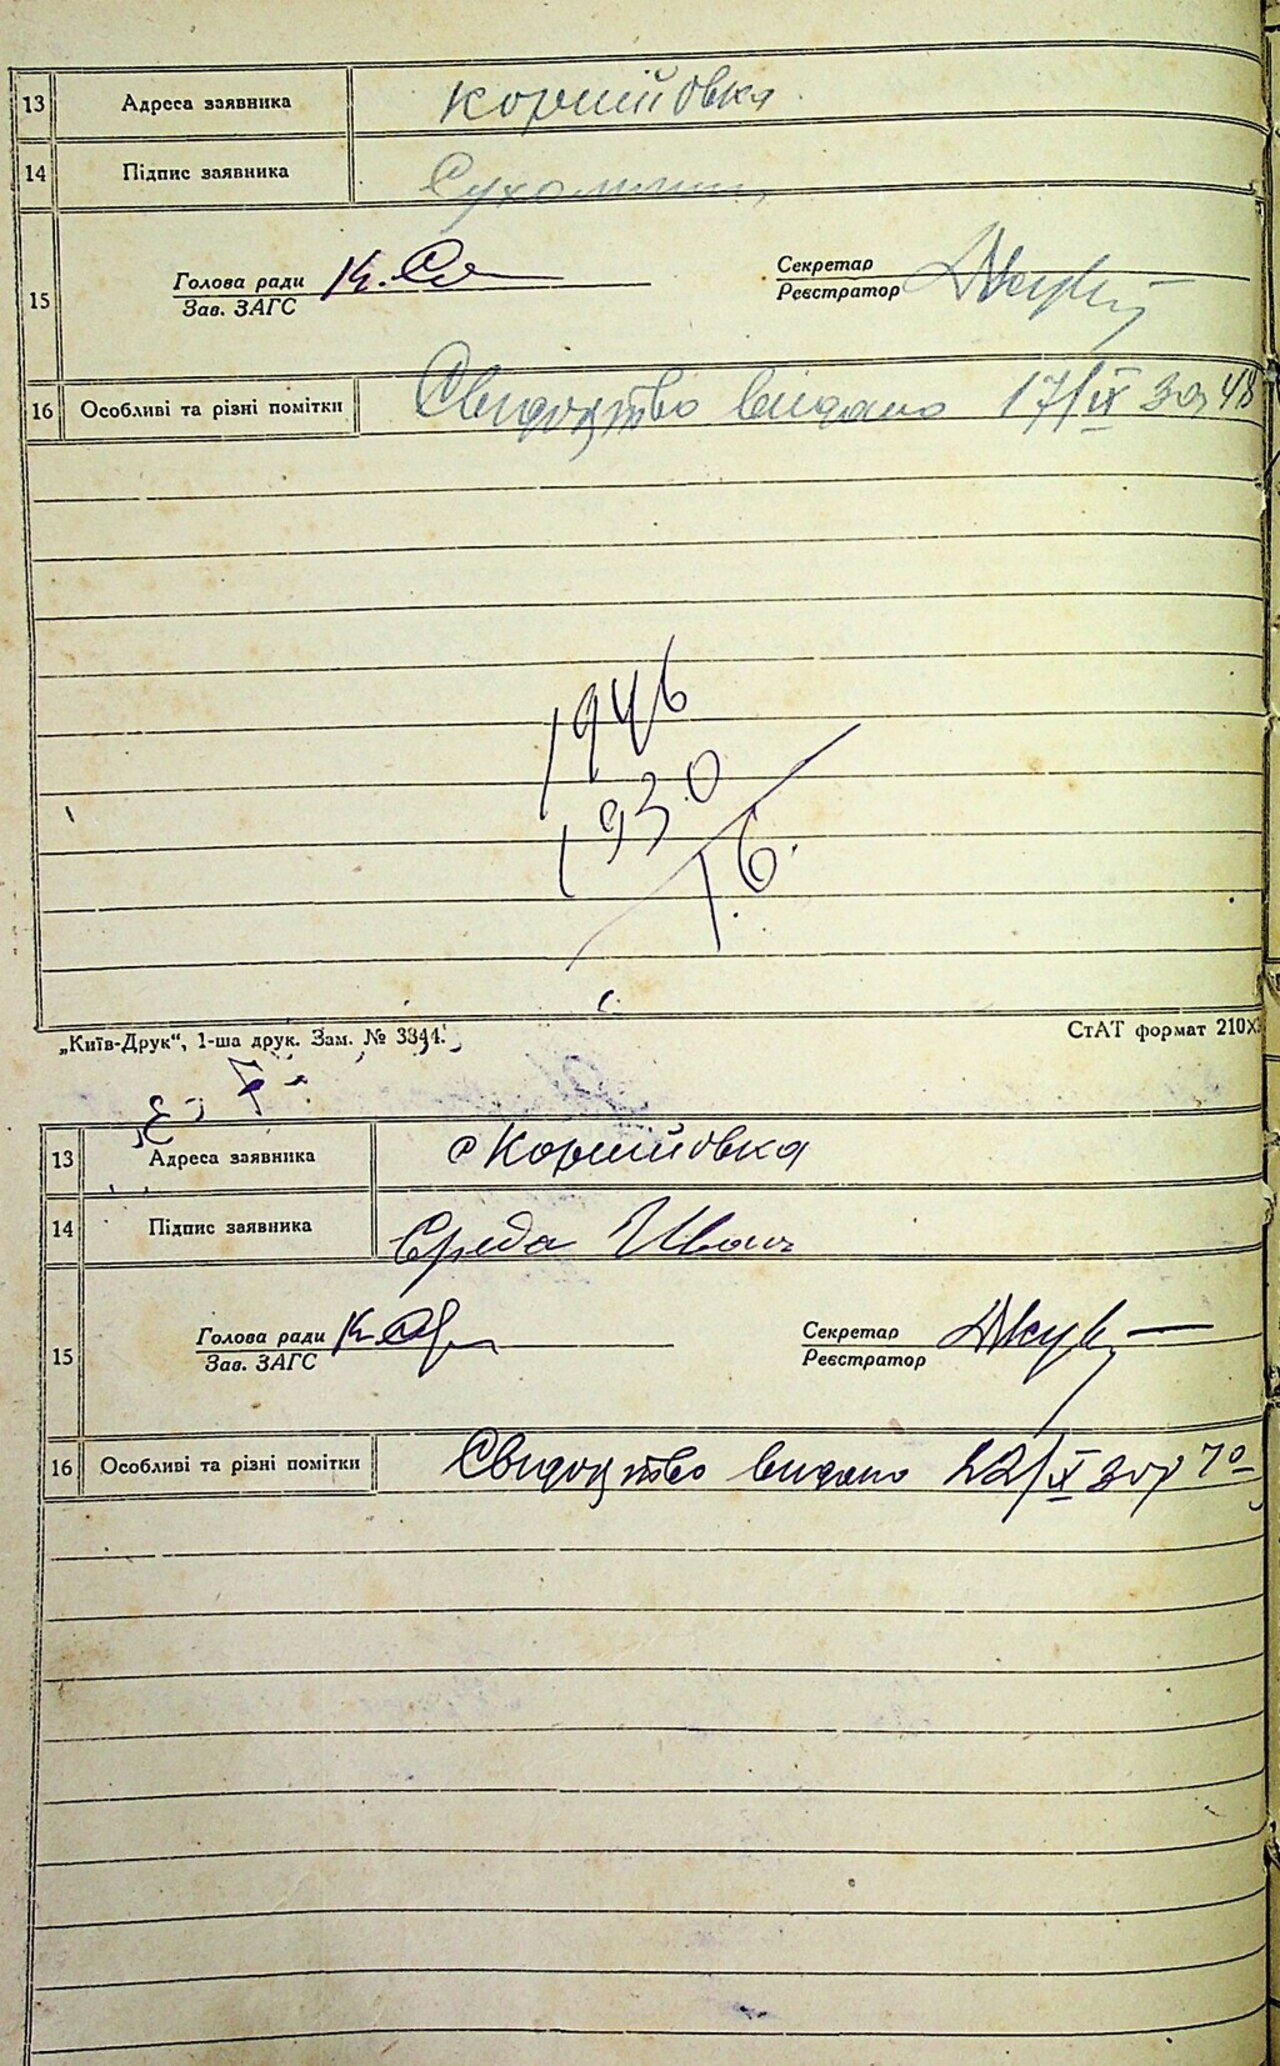 13 Адреса заявника Корнiйовка
14 Підпис заявника
15 Голова ради Секретар
Зав. ЗАГС Реєстратор
16 Особливі та різні помітки Свидоцтво видано 17/IX 30 48
1946
1930
16.
„Київ-Друк“, 1-ша друк. Зам. № 3344. СтАТ формат 210X
13 Адреса заявника с Корнiйовка
14 Підпис заявника Среда Иван
15 Голова ради Секретар
Зав. ЗАГС Реєстратор
16 Особливі та різні помітки Свидоцтво видано 22/X 30р 70